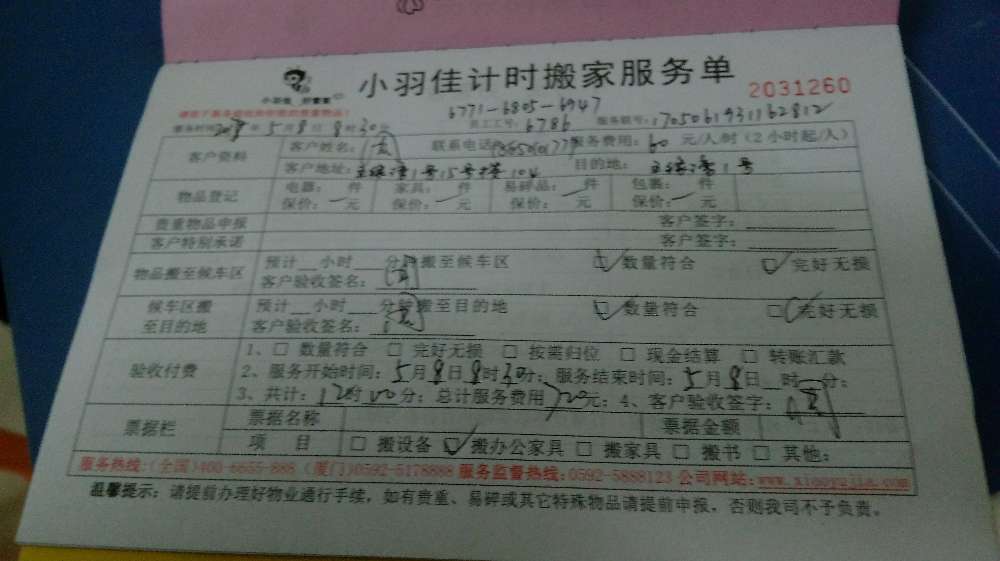 小羽佳计时搬家服务单
2031260
小羽佳 好管家
6771-6805-6947
服务时间 2017年5月8日8时30分 员工工号: 6786 服务联号: 170506193116 2812
客户资料 客户姓名: 联系电话 服务费用: 60 元/人/时 (2小时起/人)
客户地址: 1号15号楼104 目的地: 1号
物品登记 电器: 件 家具: 件 易碎品: 件 包裹: 件
保价: 一元 保价: 一元 保价: 一元 保价: 一元
贵重物品申报 客户签字:
客户特别承诺 客户签字:
物品搬至候车区 预计__小时__分钟搬至候车区 数量符合 完好无损
客户验收签名:
候车区搬至目的地 预计__小时__分钟搬至目的地 数量符合 完好无损
客户验收签名:
验收付费 1、□ 数量符合 □ 完好无损 □ 按需归位 □ 现金结算 □ 转账汇款
2、服务开始时间: 5月8日8时30分; 服务结束时间: 5月8日__时__分;
3、共计: 12时00分; 总计服务费用 720元; 4、客户验收签字:
票据栏 票据名称 票据金额
项 目 □ 搬设备 ☑ 搬办公家具 □ 搬家具 □ 搬书 □ 其他:
服务热线:(全国)400-6655-886 (厦门)0592-5178888 服务监督热线:0592-5888123 公司网站:www.xiaoyujia.com
温馨提示: 请提前办理好物业通行手续, 如有贵重、易碎或其它特殊物品请提前申报, 否则我司不予负责。